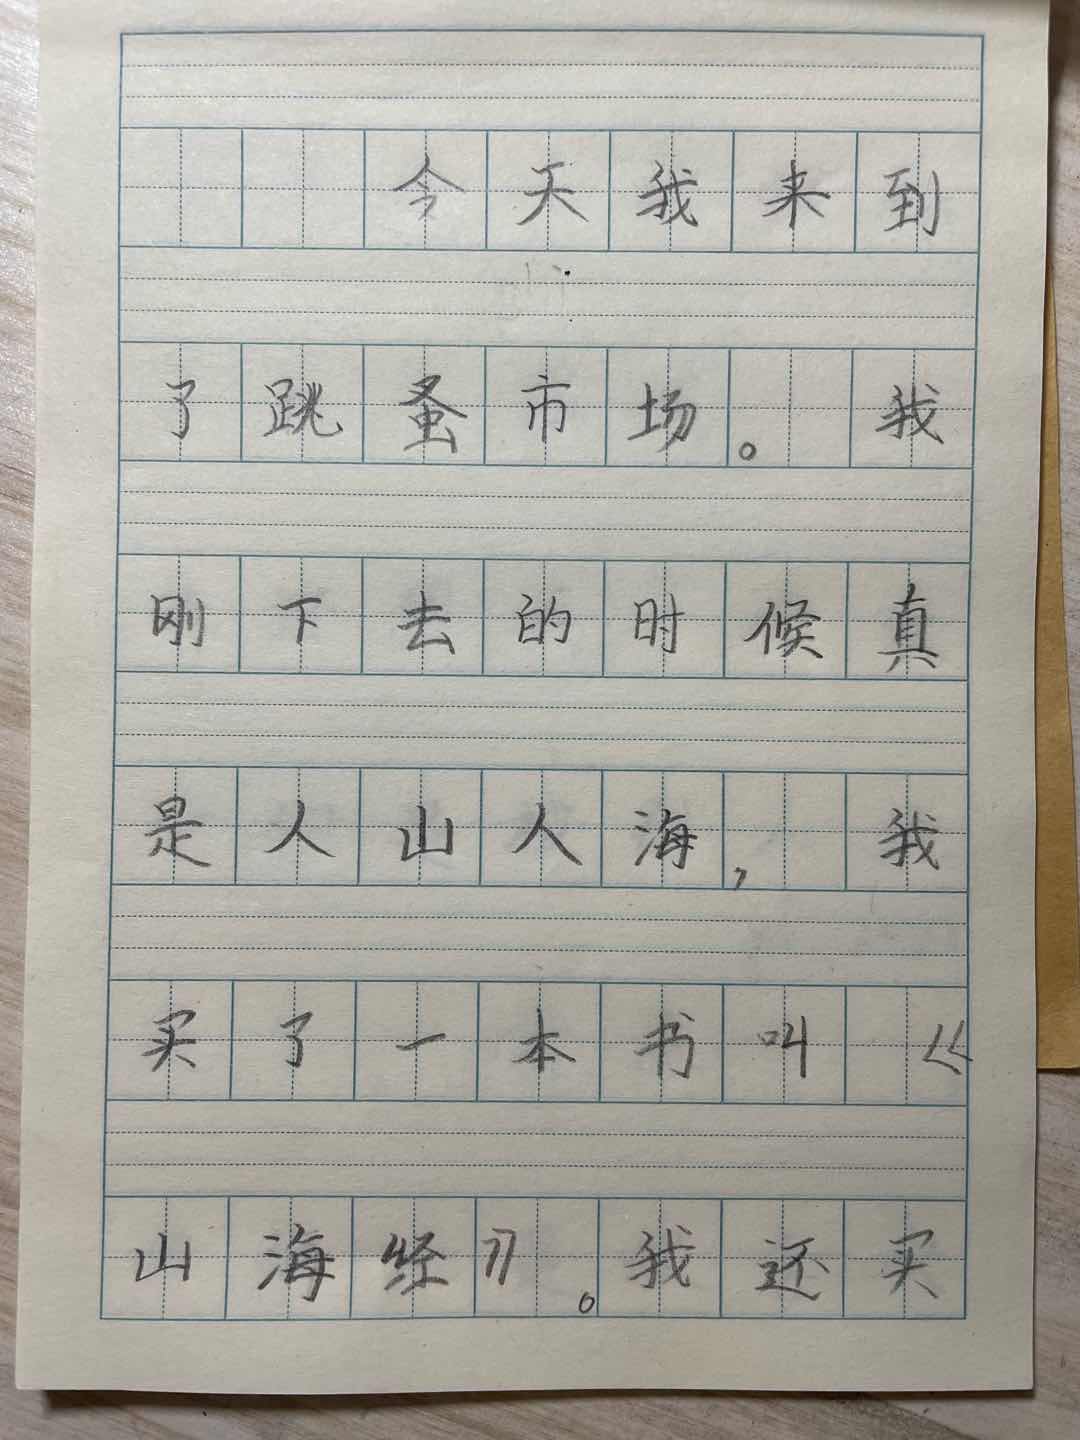 今天我来到
了跳蚤市场。我
刚下去的时候真
是人山人海，我
买了一本书叫《
山海经》。我还买